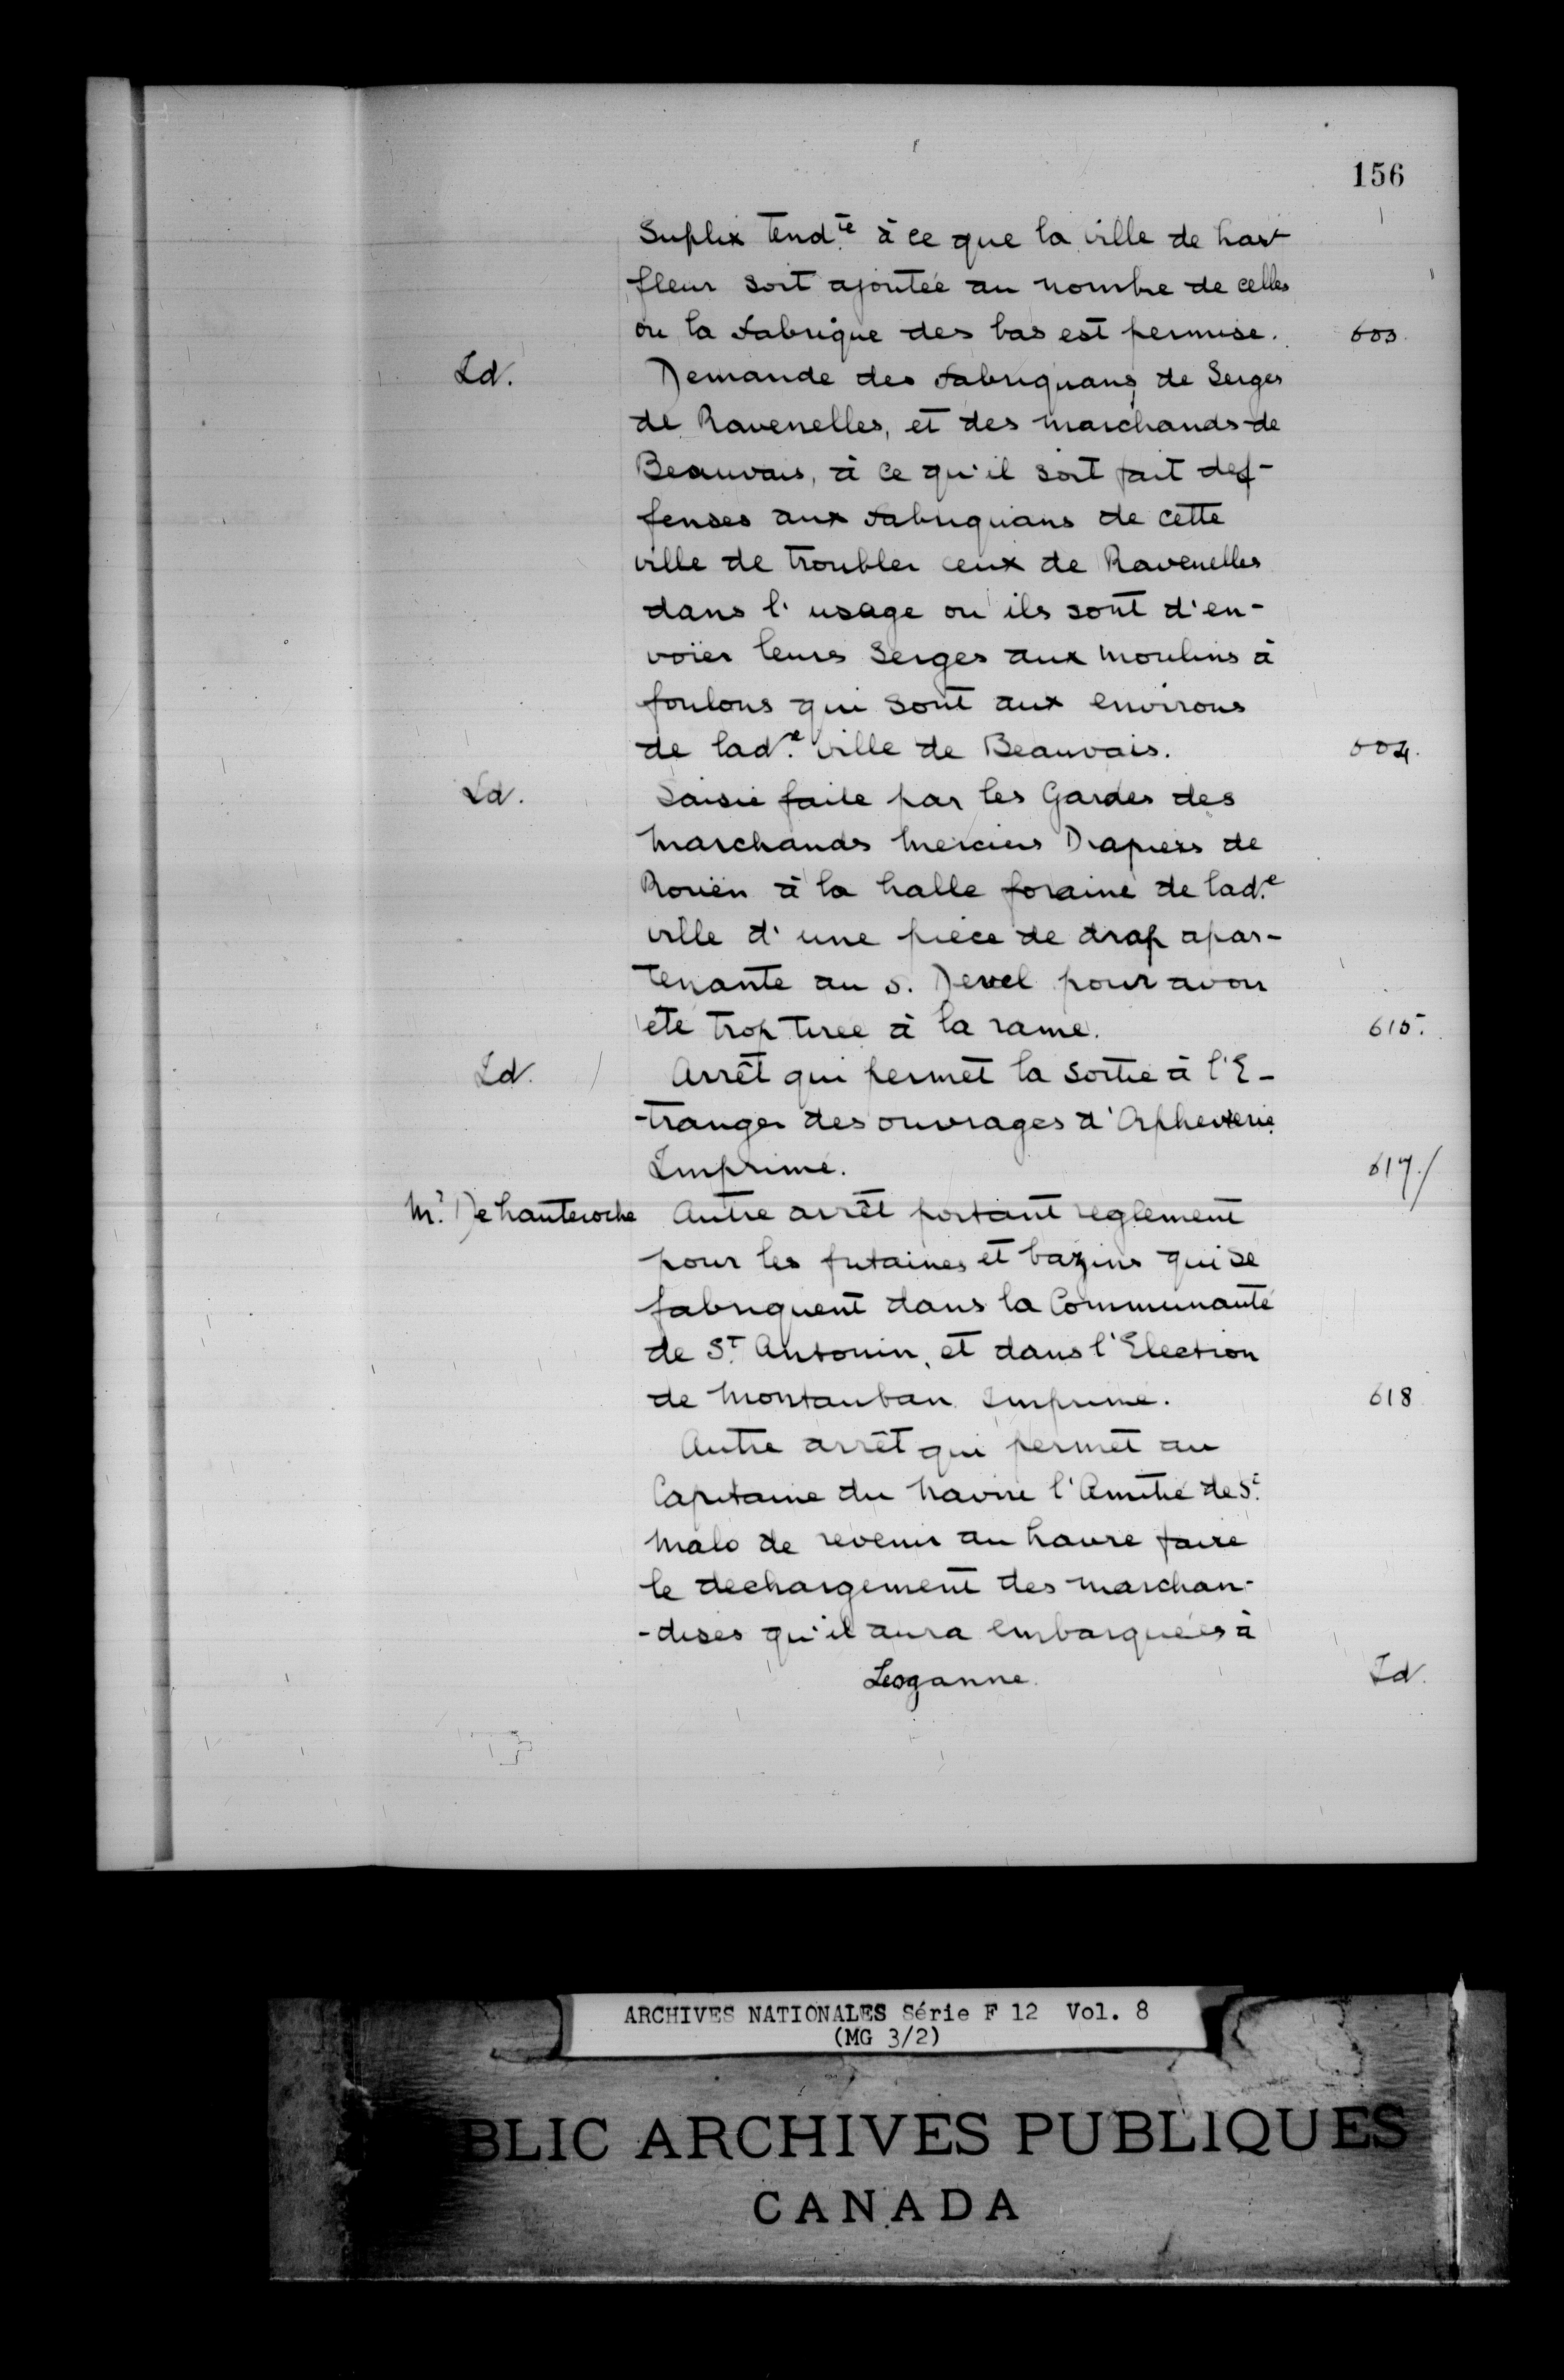 156
Suplix tend.te à ce que la ville de harf
fleur soit ajoutée au nombre de celles
ou la fabrique des bas est permise. 603.
Id. Demande des fabriquans de Serges
de Ravenelles, et des marchands de
Beauvais, à ce qu'il soit fait def-
fenses aux fabriquans de cette
ville de troubler ceux de Ravenelles
dans l'usage ou ils sont d'en-
voïer leurs Serges aux Moulins à
foulons qui sont aux environs
de lad.e ville de Beauvais. 604.
Id. Saisie faite par les Gardes des
Marchands Merciers Drapiers de
Rouën à la halle foraine de lad.e
ville d'une piéce de drap apar-
tenante au S. Devel pour avoir
eté trop tirée à la rame. 615.
Id. Arrêt qui permet la sortie à l'E-
-tranger des ouvrages d'Orphevrerie
Imprimé. 617./
M.r De hauteroche Autre arrêt portant reglement
pour les futaines et bazins qui se
fabriquent dans la Communauté
de S.t Antonin, et dans l'Election
de Montauban Imprimé. 618
Autre arrêt qui permet au
Capitaine du Navire l'Amitié de S.t
Malo de revenir au havre faire
le dechargement des marchan-
-dises qu'il aura embarquées à
Leoganne. Id.
ARCHIVES NATIONALES Série F 12 Vol. 8
(MG 3/2)
BLIC ARCHIVES PUBLIQUES
CANADA